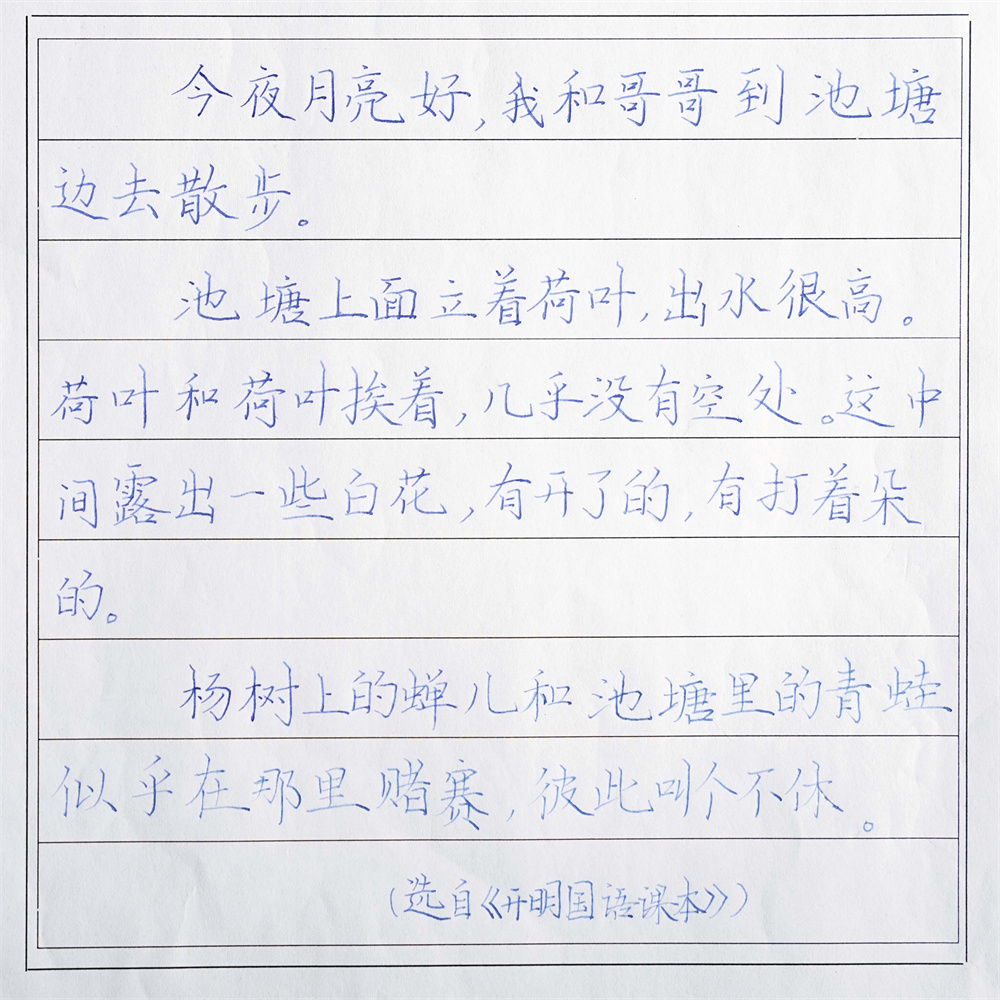 今夜月亮好,我和哥哥到池塘
边去散步。
池塘上面立着荷叶,出水很高。
荷叶和荷叶挨着,几乎没有空处。这中
间露出一些白花,有开了的,有打着朵
的。
杨树上的蝉儿和池塘里的青蛙
似乎在那里赌赛,彼此叫个不休。
(选自《开明国语课本》)